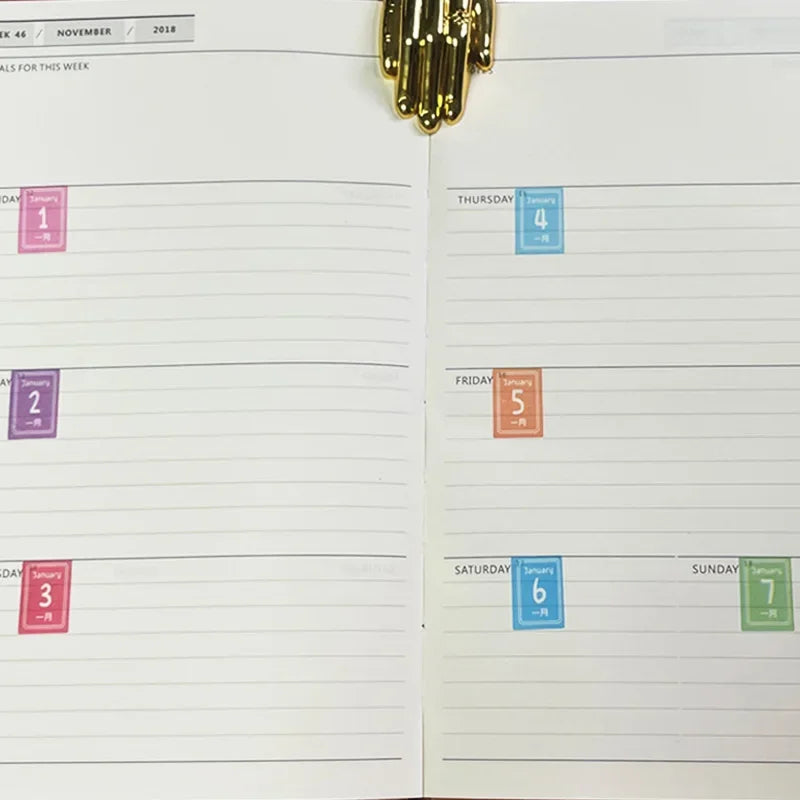 EK 46 / NOVEMBER / 2018
ALS FOR THIS WEEK
DAY
January
1
一月
AY
January
2
一月
SDAY
January
3
一月
THURSDAY
January
4
一月
FRIDAY
January
5
一月
SATURDAY
January
6
一月
SUNDAY
January
7
一月